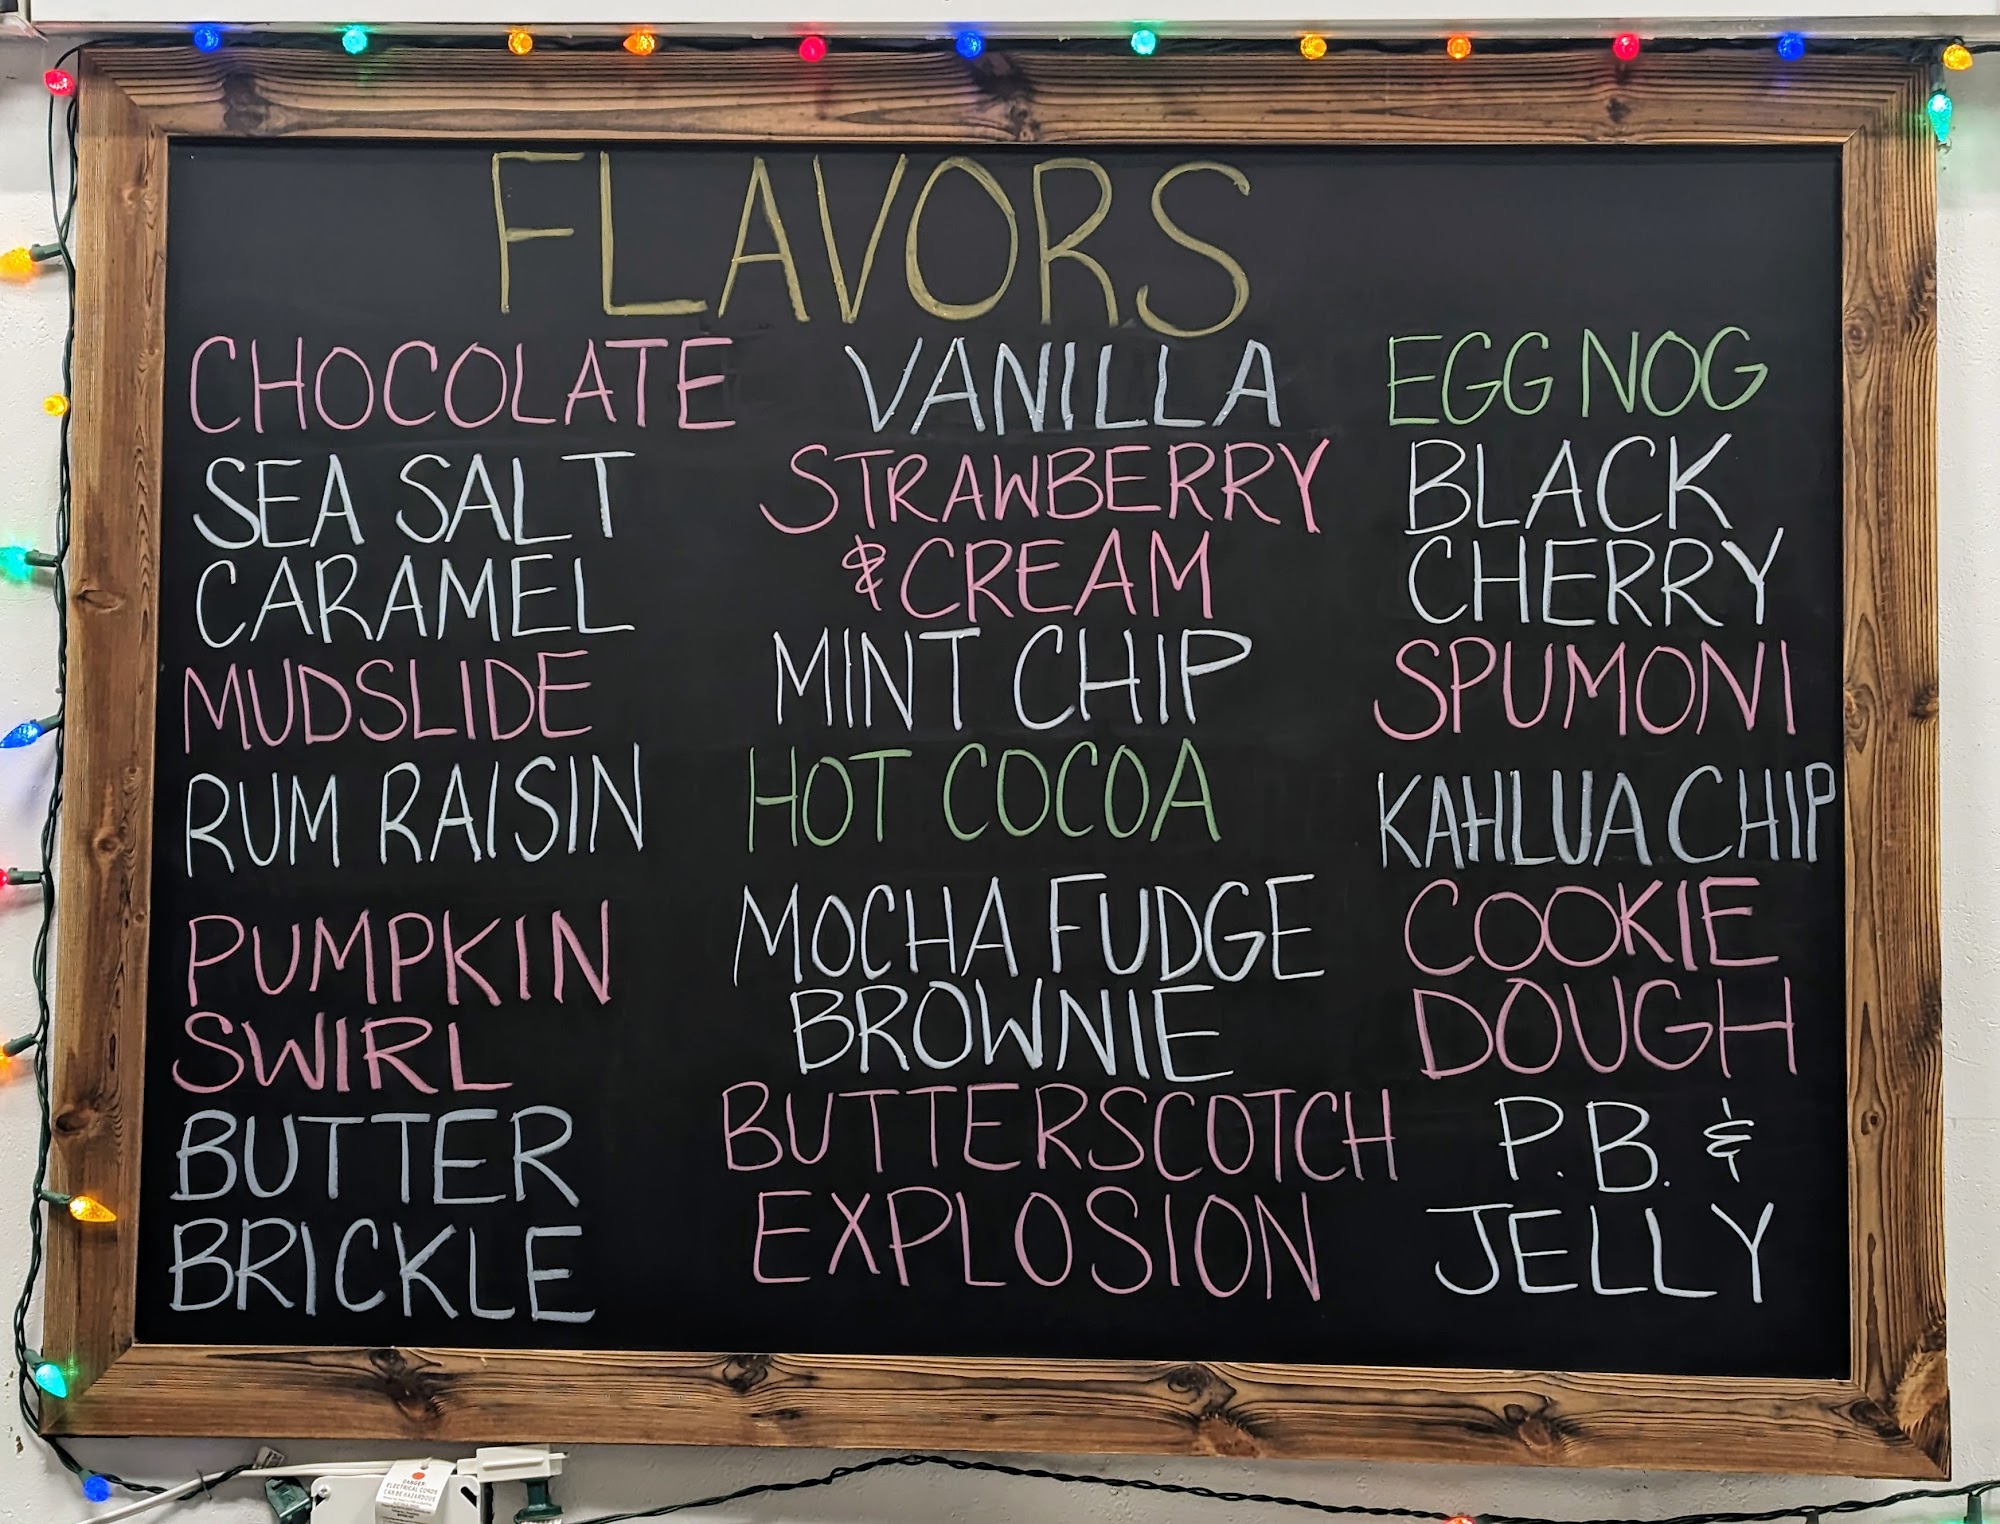 FLAVORS
CHOCOLATE
SEA SALT
CARAMEL
MUDSLIDE
RUM RAISIN
PUMPKIN
SWIRL
BUTTER
BRICKLE
VANILLA
STRAWBERRY
& CREAM
MINT CHIP
HOT COCOA
MOCHA FUDGE
BROWNIE
BUTTERSCOTCH
EXPLOSION
EGG NOG
BLACK
CHERRY
SPUMONI
KAHLUA CHIP
COOKIE
DOUGH
P.B. &
JELLY
DANGER
ELECTRICAL CORDS
CAN BE HAZARDOUS